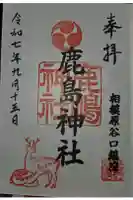 奉拝
相模原谷口鎮守
鹿島神社
鹿嶋神社
令和七年九月十五日